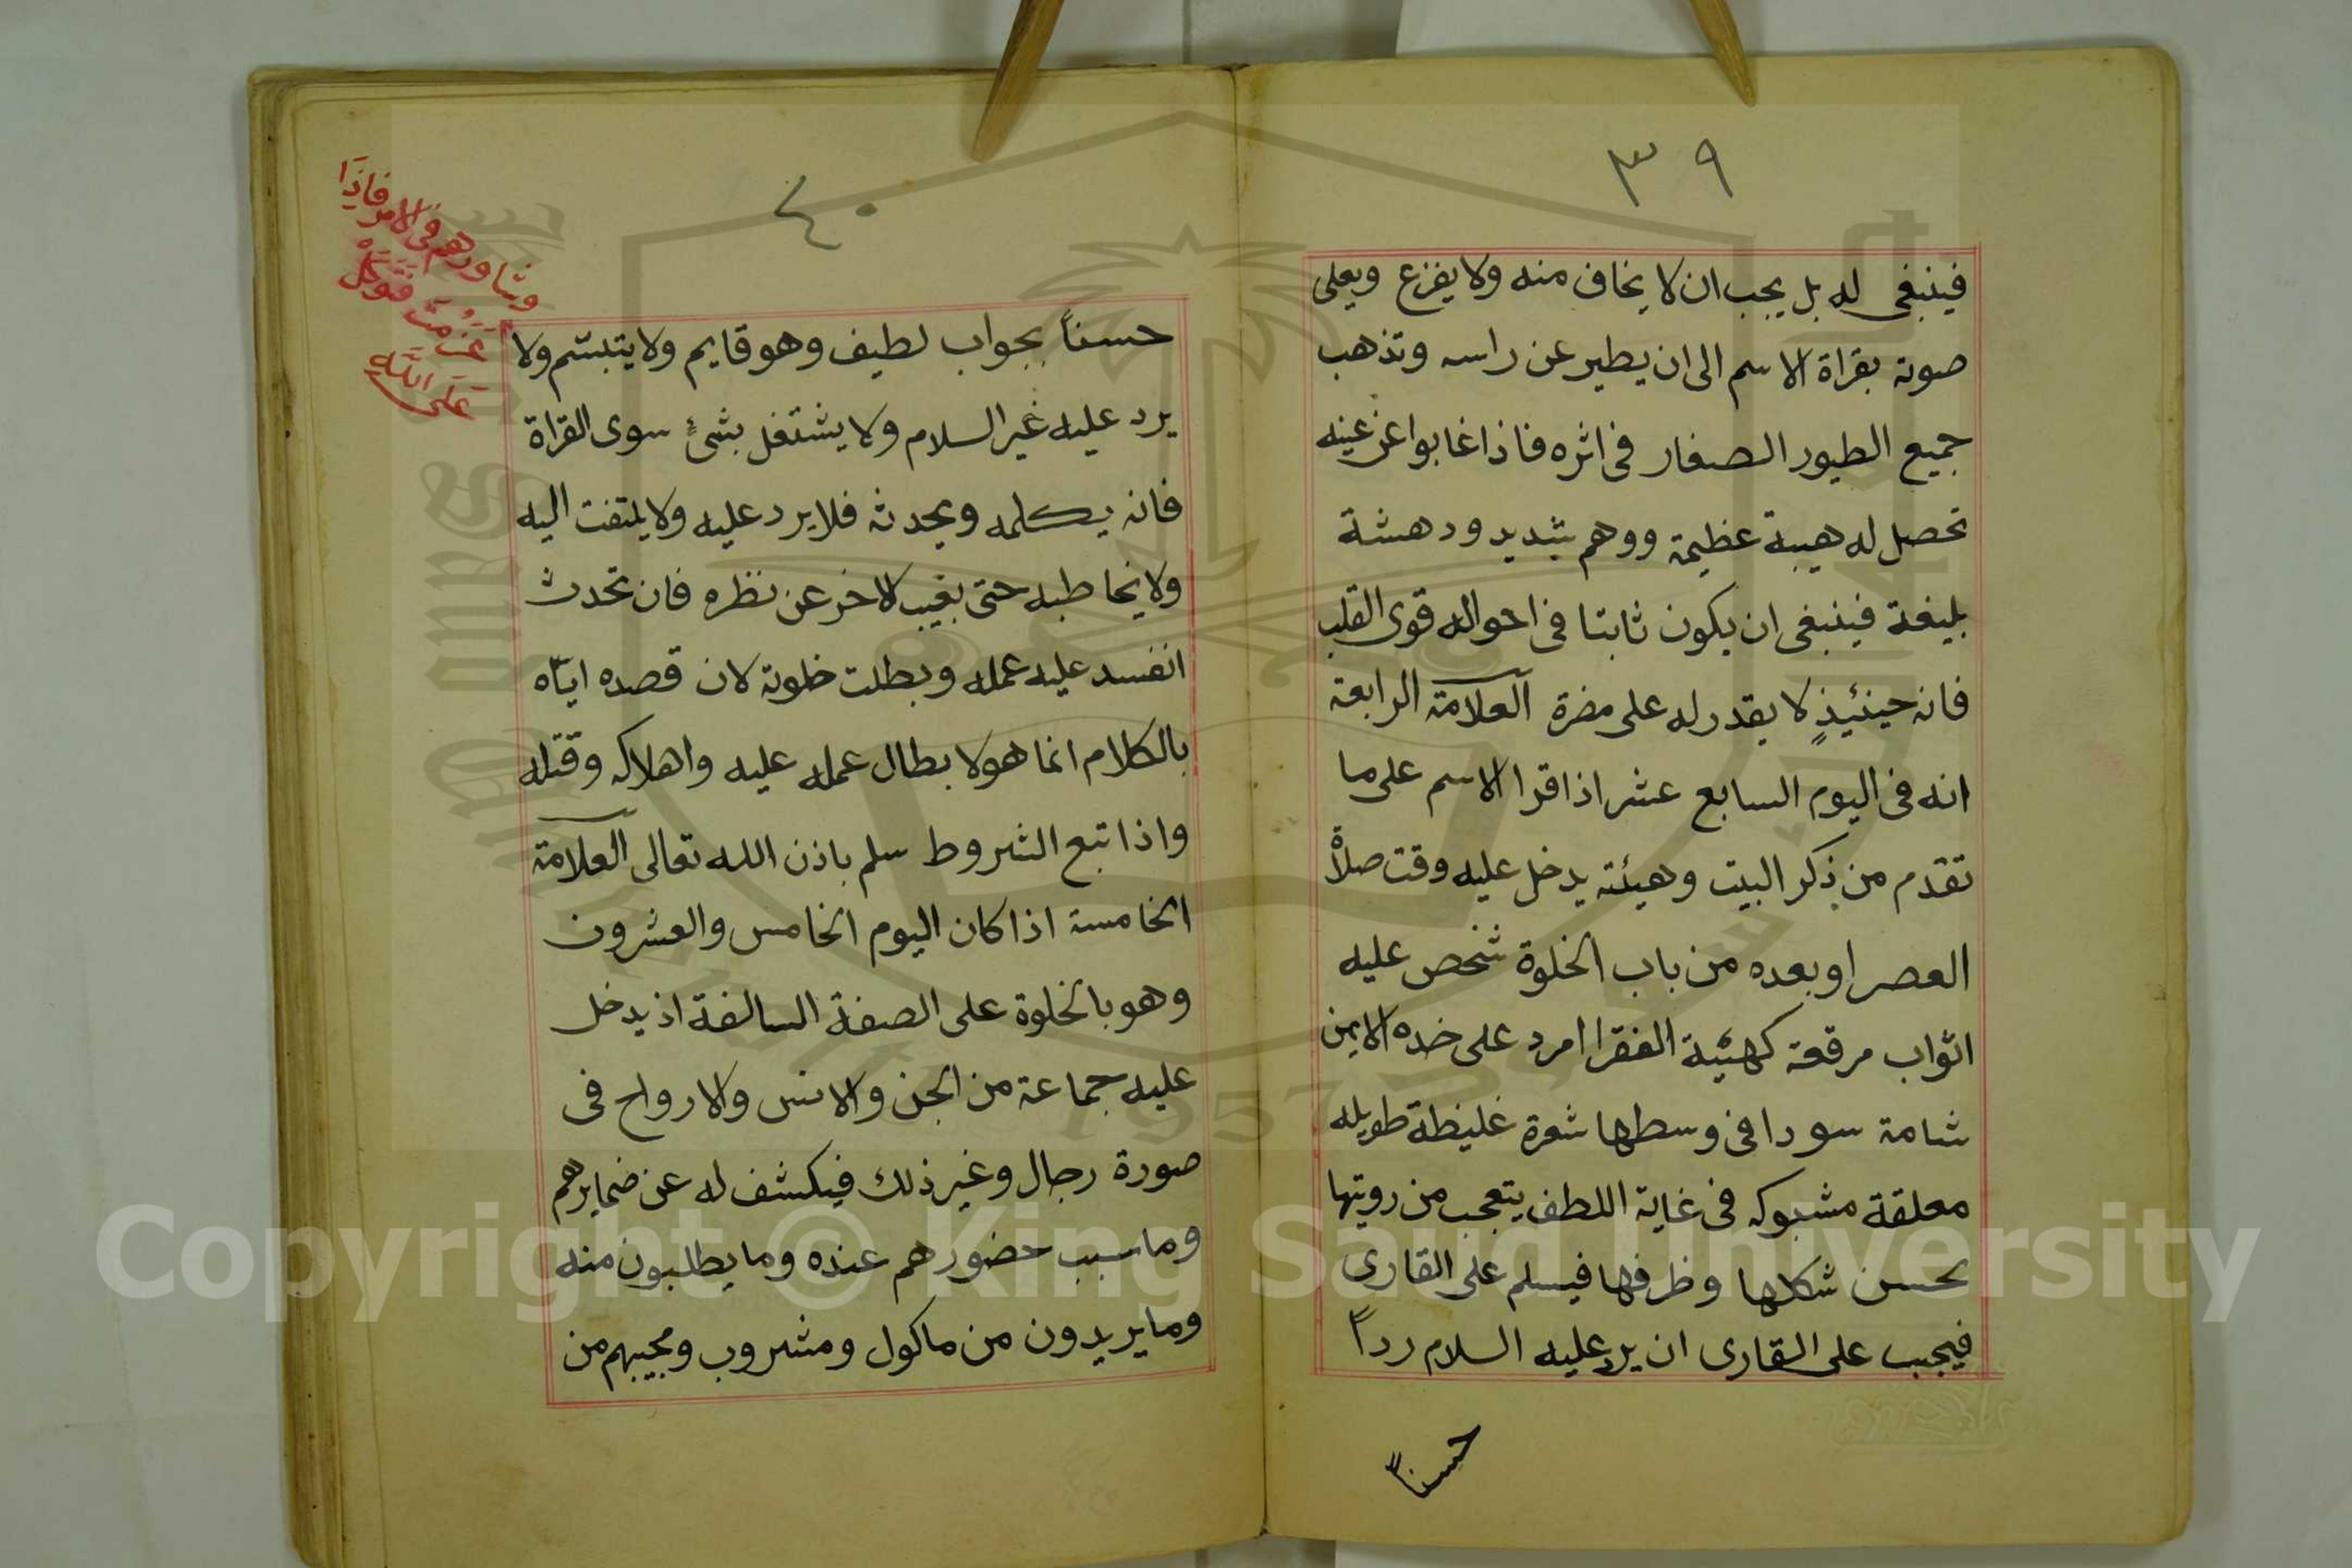 ٣٩
فينبغى له بل يجب ان لا يخاف منه ولا يفزع ويعلى
صوته بقراة الاسم الى ان يطير عن راسه وتذهب
جميع الطيور الصغار فى اثره فاذا غابوا عن عينه
تحصل له هيبة عظيمة ووهم شديد ودهشة
بليغة فينبغى ان يكون ثابتا فى احواله قوى القلب
فانه حينئيذٍ لا يقدر له على مضرة العلامة الرابعة
انه فى اليوم السابع عشر اذا قرا الاسم على ما
تقدم من ذكر البيت وهيئته يدخل عليه وقت صلاة
العصر او بعده من باب الخلوة شخص عليه
اثواب مرقعة كهئية الفقرا امرد على خده الايمن
شامة سودا فى وسطها شعرة غليظة طويله
معلقة مشبوكه فى غاية اللطف يتعجب من رويتها
بحسن شكلها وظرفها فيسلم على القارى
فيجب على القارى ان يرد عليه السلام رداً
حسناً
٤٠
حسناً بجواب لطيف وهو قايم ولا يتبسّم ولا
يرد عليه غير السلام ولا يشتغل بشئٍ سوى القراة
فانه يكلمه ويحدثه فلا يرد عليه ولا يلتفت اليه
ولا يخاطبه حتى يغيب الاخر عن نظره فان تحدث
انفسد عليه عمله وبطلت خلوته لان قصده ايّاه
بالكلام انما هو لا بطال عمله عليه واهلاكه وقتله
واذا تبع الشروط سلم باذن الله تعالى العلامة
الخامسة اذا كان اليوم الخامس والعشرون
وهو بالخلوة على الصفة السالفة اذ يدخل
عليه جماعة من الجن والانس والارواح فى
صورة رجال وغير ذلك فيكشف له عن ضمايرهم
وما سبب حضورهم عنده وما يطلبون منه
وما يريدون من ماكول ومشروب ومجيبهم من
وشاورهم فى الامر فاذا
عزمت فتوكل
على الله
Copyright © King Saud University
1957